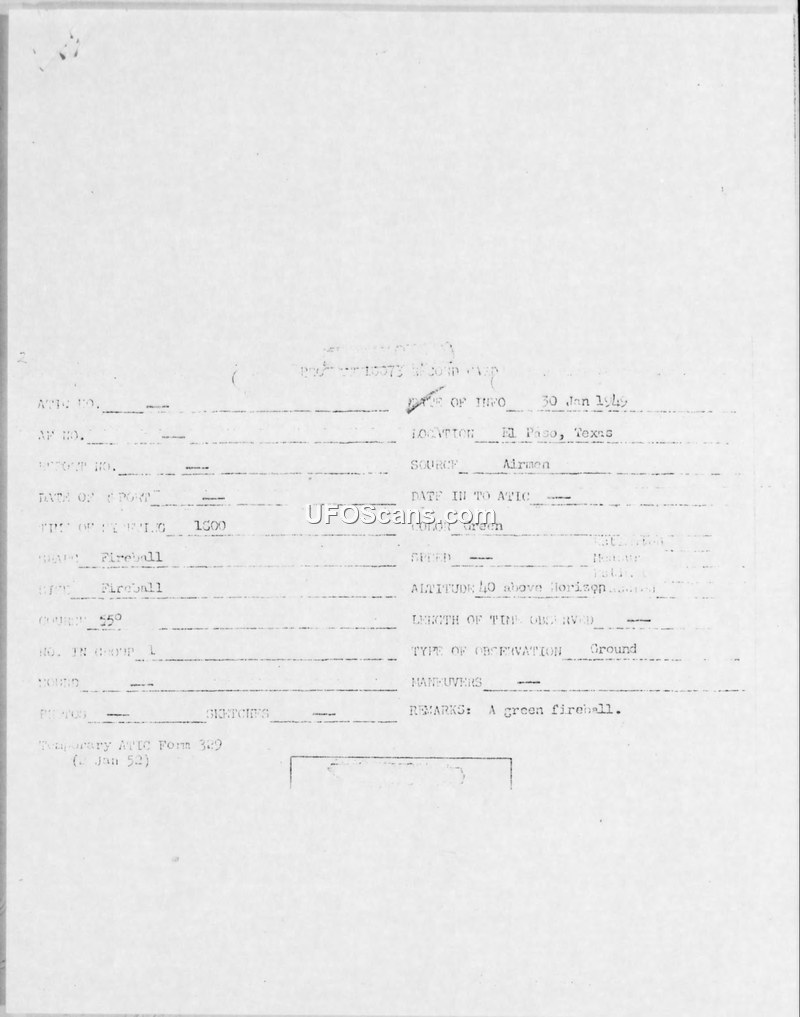 ATIC NO. —
DATE OF INFO 30 Jan 1949
AF NO. —
LOCATION El Paso, Texas
REPORT NO. —
SOURCE Airmen
DATE OF REPORT —
DATE IN TO ATIC —
UFOScans.com
TIME OF SIGHTING 1800
COLOR Green
SHAPE Fireball
SPEED —
SIZE Fireball
ALTITUDE 40 above Horizon
COURSE 55°
LENGTH OF TIME OBSERVED —
NO. IN GROUP 1
TYPE OF OBSERVATION Ground
SOUND —
MANEUVERS —
PHOTOS — SKETCHES —
REMARKS: A green fireball.
Temporary ATIC Form 329
(2 Jan 52)